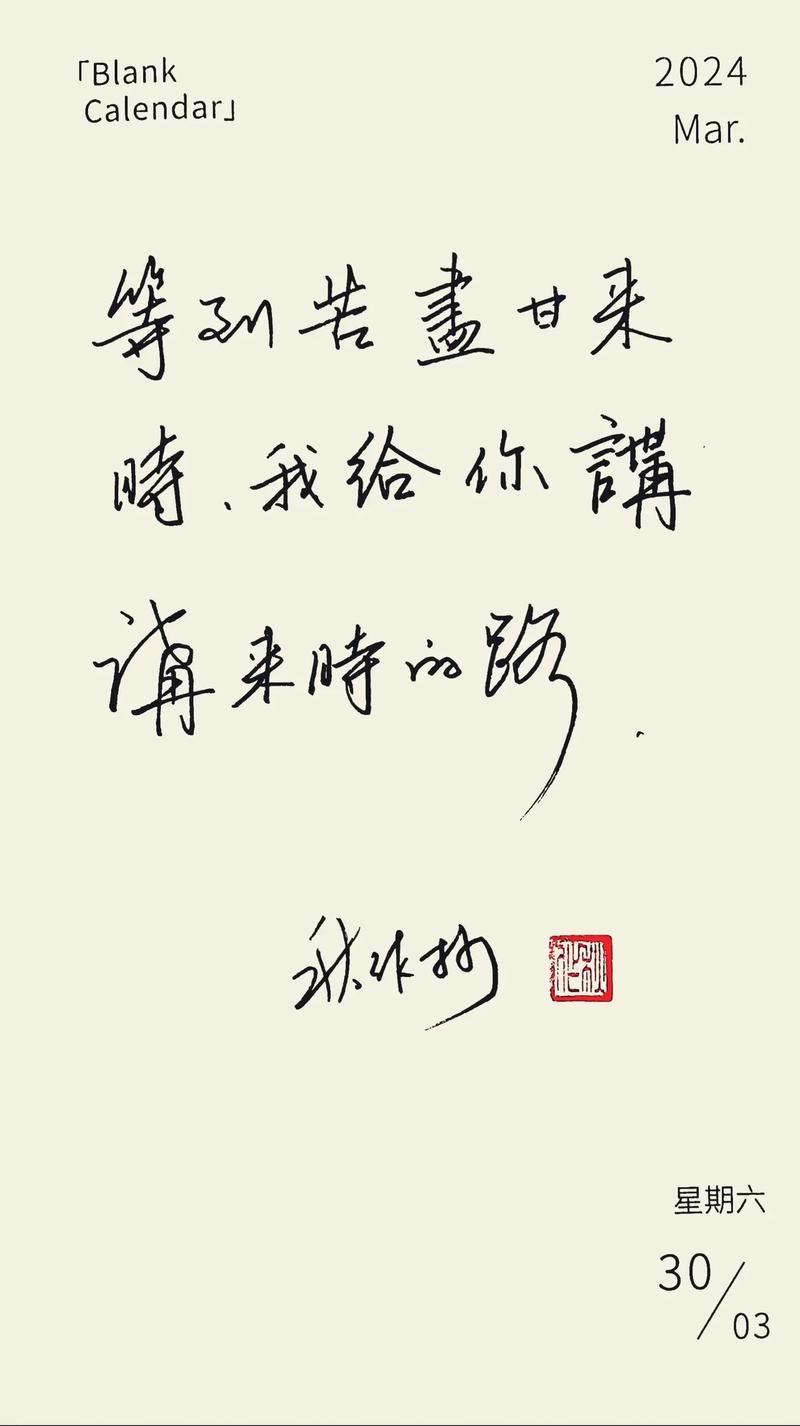 「Blank
Calendar」
2024
Mar.
等到苦盡甘来
時、我给你講
講来時的路.
星期六
30/03